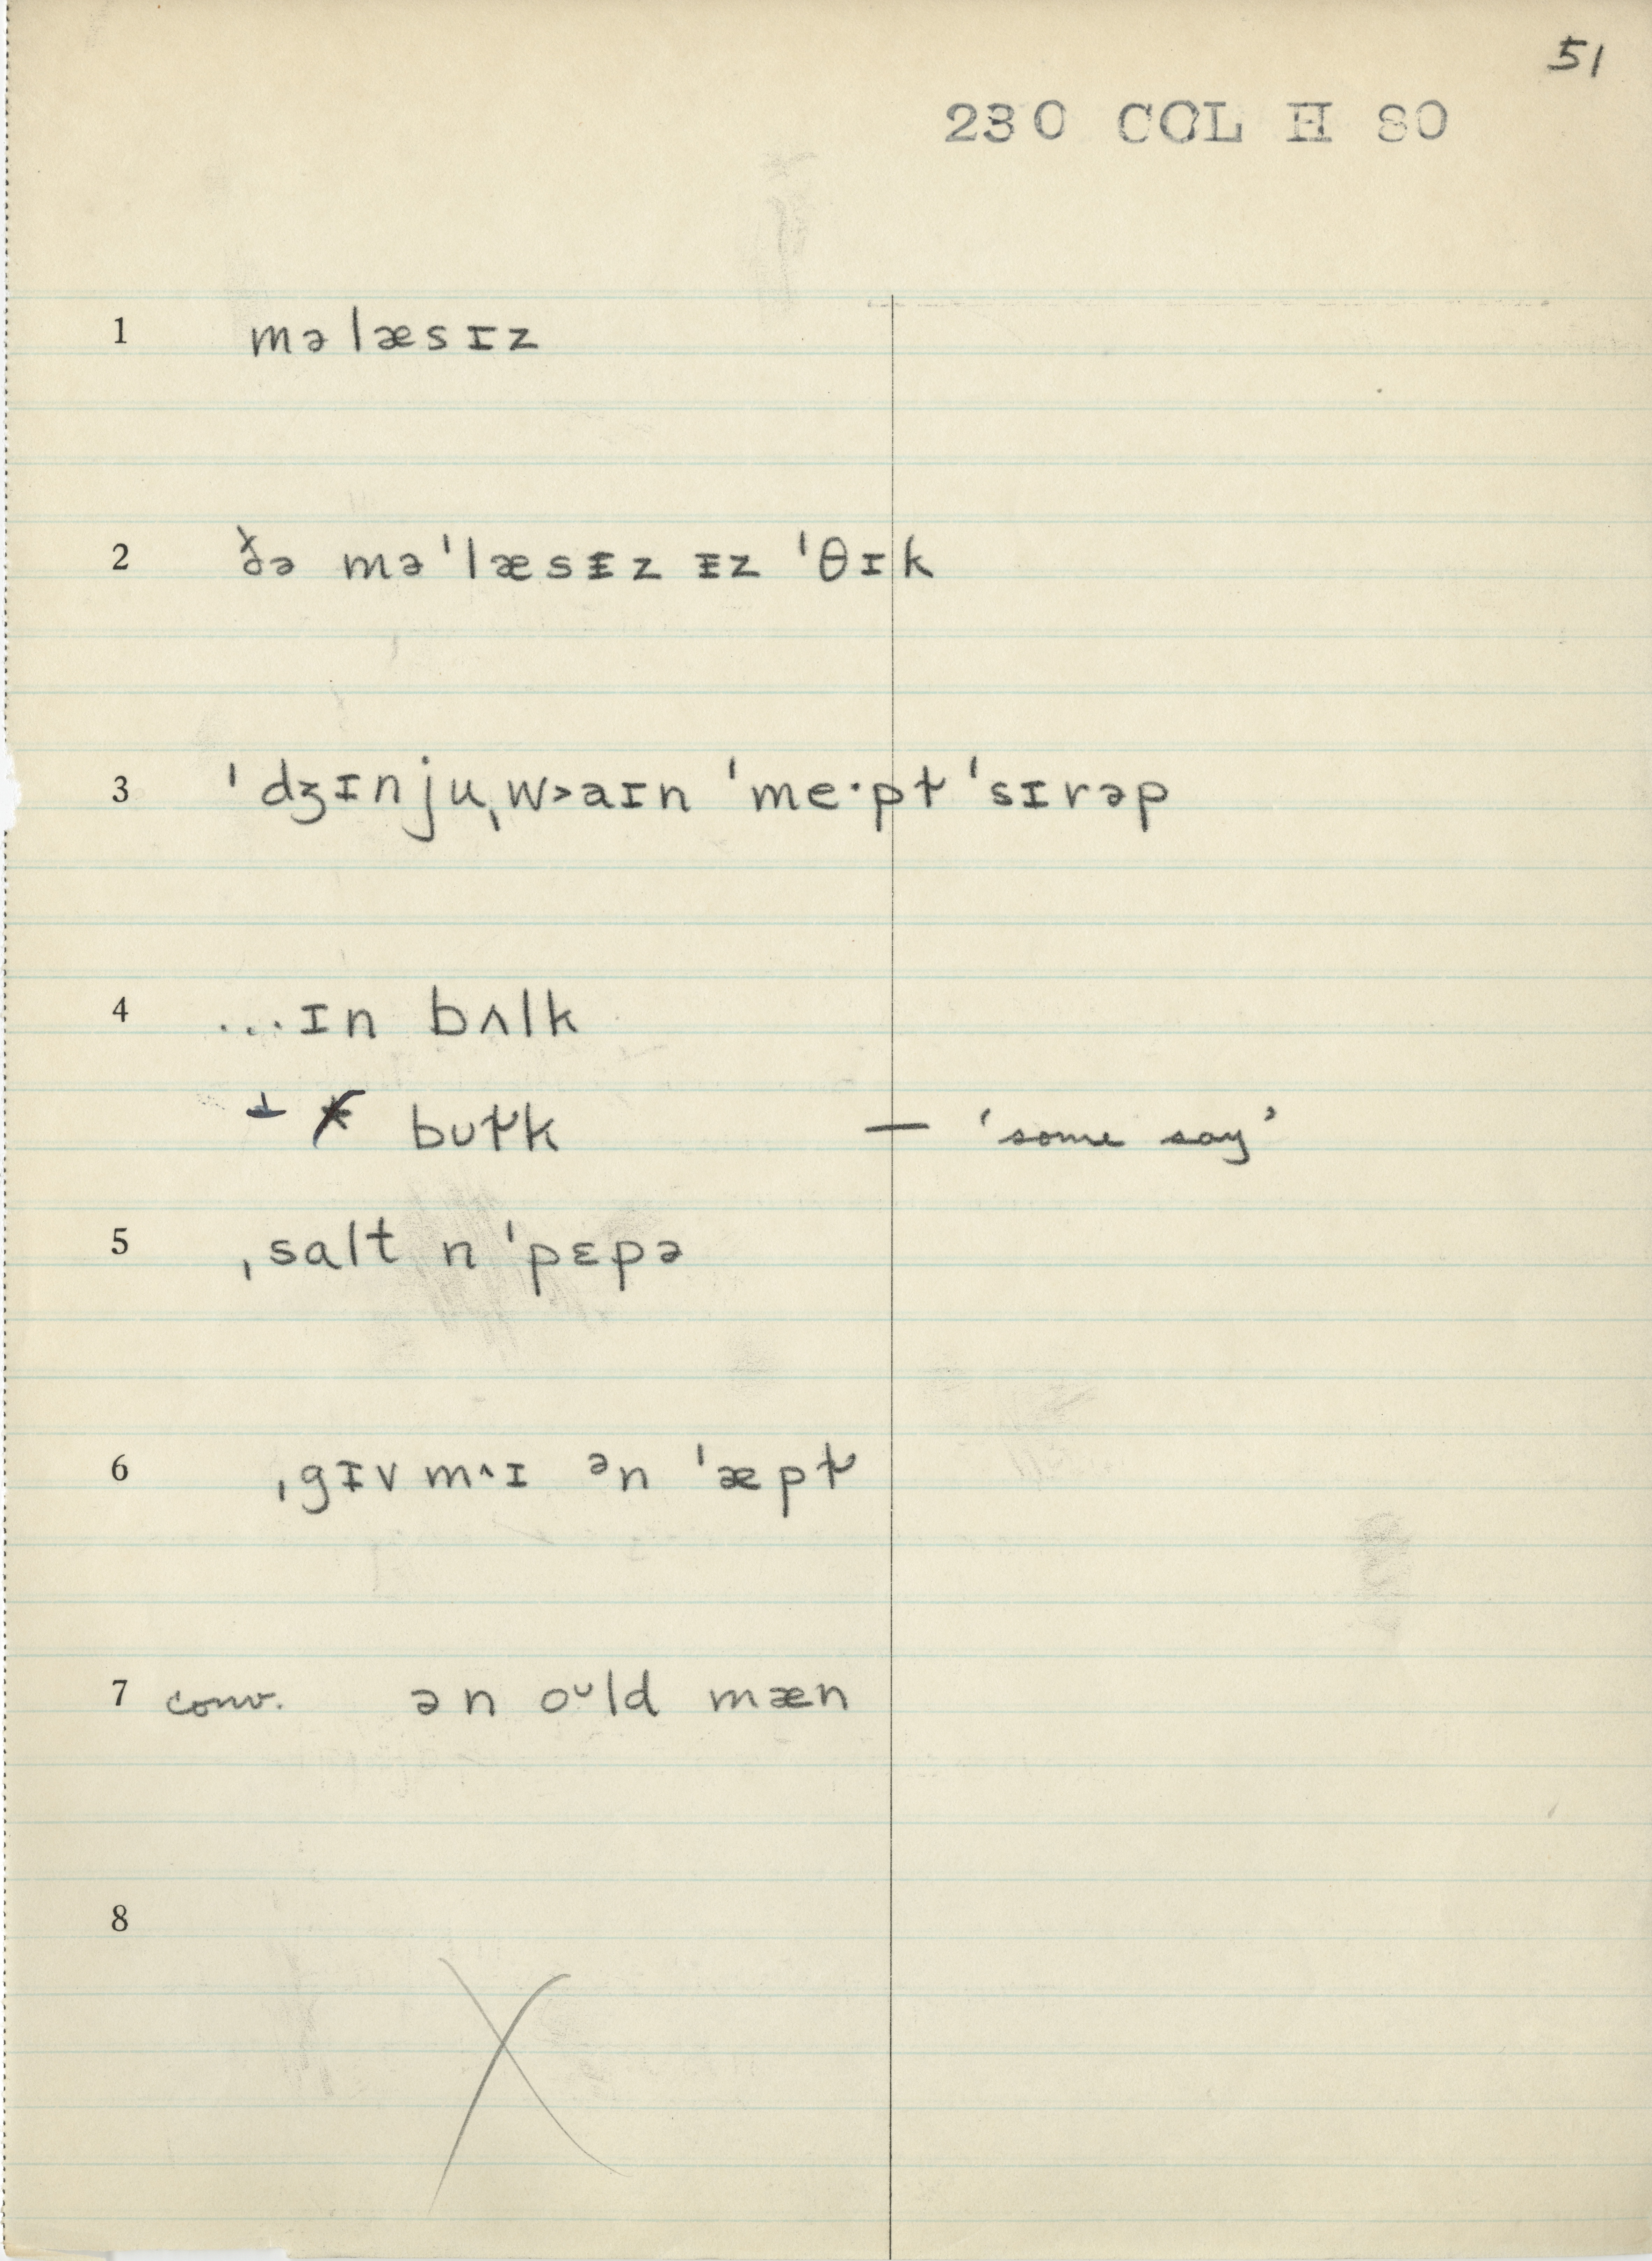 51
230 COL H 80
1 mə læsɪz
2 ðə mə ˈlæsᵻz ᵻz ˈθɪk
3 ˈdʒɪnjuˌw˃aɪn ˈme·pɫ ˈsɪrəp
4 ...ɪn bʌlk
bʊɫk — 'some say'
5 ˌsalt n ˈpɛpə
6 ˌgɪv m^ɪ ᵊn ˈæpɫ
7 conv. ən oᶷld mæn
8